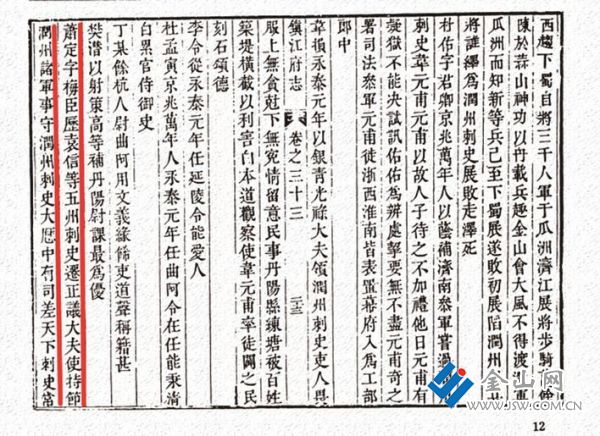 西趨下蜀自將三千人軍于瓜洲濟江展將步騎餘
陳於蒜山神功以舟載兵趣金山會大風不得渡軍
瓜洲而知新等兵已至下蜀展遂敗初展陷潤州
將許繹爲潤州刺史展敗走澤死
杜佑字君卿京兆萬年人以蔭補濟南參軍嘗過
刺史韋元甫元甫以故人子待之不加禮他日元甫有
疑獄不能決試訊佑佑爲辨處契要無不盡元甫奇之
署司法參軍元甫徙浙西淮南皆表置幕府入爲工部
郎中
鎮江府志 卷之三十三
韋損永泰元年以銀青光祿大夫領潤州刺史吏人畏
服上無貪尅下無冤情留意民事丹陽縣練塘被百姓
築堤橫截以利害白本道觀察使韋元甫率徒闢之民
刻石頌德
李令從永泰元年任延陵令能愛人
杜孟寅京兆萬年人永泰元年任曲阿令在任能秉清
白累官侍御史
丁某餘杭人尉曲阿用文義緣飾吏道聲稱籍甚
樊潽以射策高等補丹陽尉課最爲優
蕭定字梅臣歷袁信等五州刺史遷正議大夫使持節
潤州諸軍事守潤州刺史大厯中有司差天下刺史常
金山网
WWW.JSW.COM.CN
12